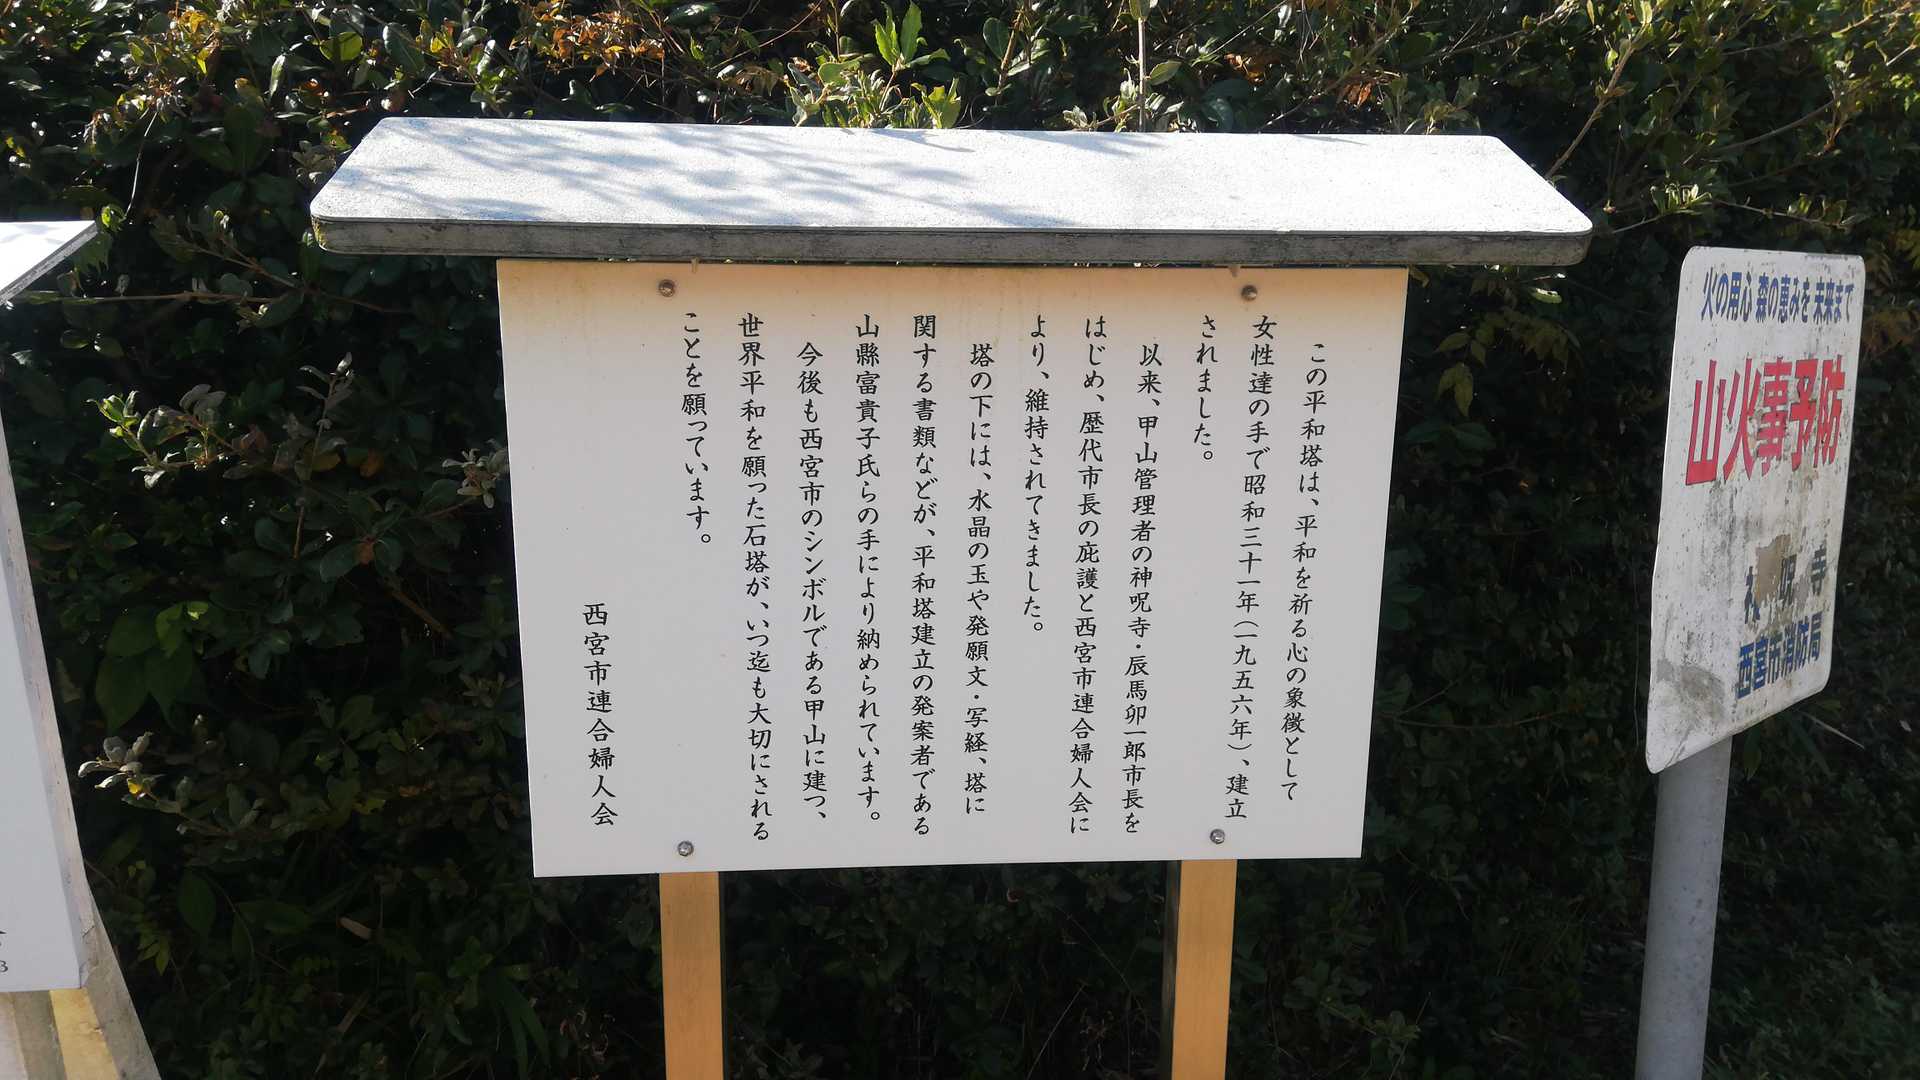 この平和塔は、平和を祈る心の象徴として
女性達の手で昭和三十一年（一九五六年）、建立
されました。
以来、甲山管理者の神呪寺・辰馬卯一郎市長を
はじめ、歴代市長の庇護と西宮市連合婦人会に
より、維持されてきました。
塔の下には、水晶の玉や発願文・写経、塔に
関する書類などが、平和塔建立の発案者である
山縣富貴子氏らの手により納められています。
今後も西宮市のシンボルである甲山に建つ、
世界平和を願った石塔が、いつ迄も大切にされる
ことを願っています。
西宮市連合婦人会
火の用心 森の恵みを 未来まで
山火事予防
呪 寺
西宮市消防局